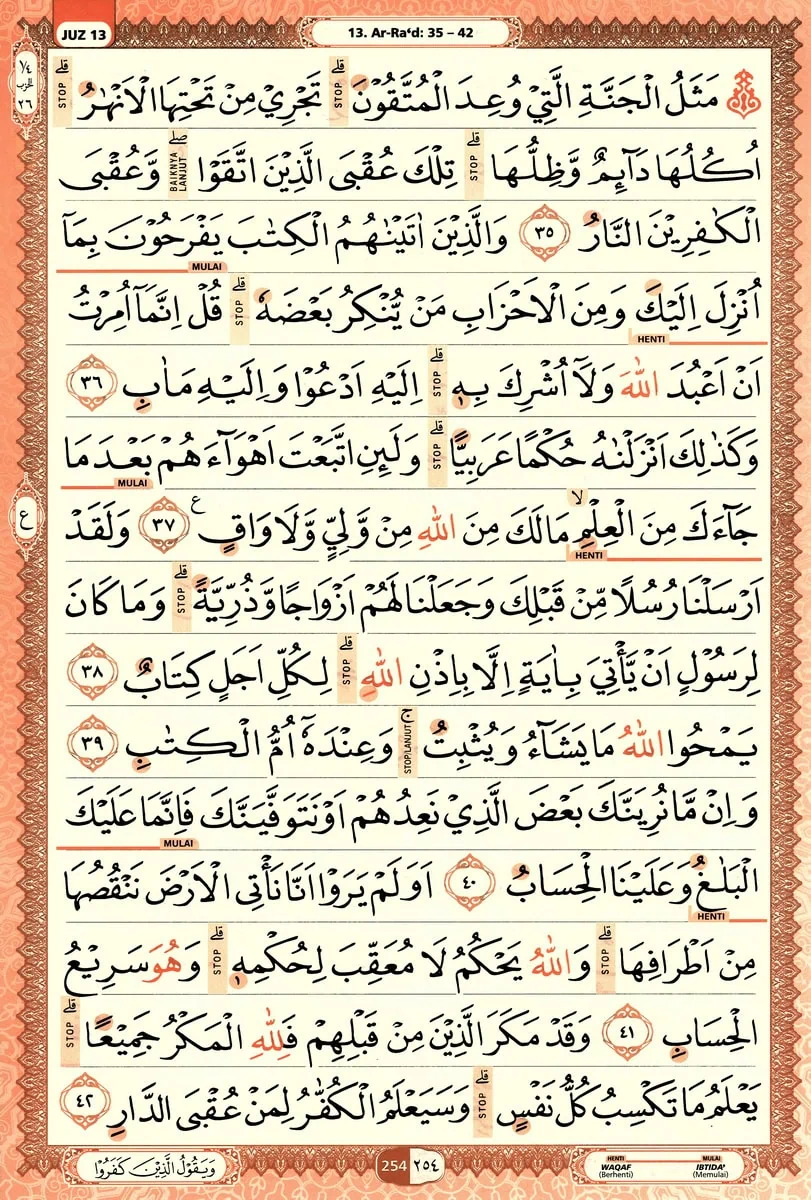 JUZ 13
13. Ar-Ra‘d: 35 – 42
مَثَلُ الْجَنَّةِ الَّتِيْ وُعِدَ الْمُتَّقُوْنَۗ تَجْرِيْ مِنْ تَحْتِهَا الْاَنْهٰرُۗ
اُكُلُهَا دَاۤىِٕمٌ وَّظِلُّهَاۗ تِلْكَ عُقْبَى الَّذِيْنَ اتَّقَوْاۖ وَّعُقْبَى
الْكٰفِرِيْنَ النَّارُ ٣٥ وَالَّذِيْنَ اٰتَيْنٰهُمُ الْكِتٰبَ يَفْرَحُوْنَ بِمَآ
MULAI
اُنْزِلَ اِلَيْكَ وَمِنَ الْاَحْزَابِ مَنْ يُّنْكِرُ بَعْضَهٗۗ قُلْ اِنَّمَآ اُمِرْتُ
HENTI
اَنْ اَعْبُدَ اللّٰهَ وَلَآ اُشْرِكَ بِهٖۗ اِلَيْهِ اَدْعُوْا وَاِلَيْهِ مَاٰبِ ٣٦
وَكَذٰلِكَ اَنْزَلْنٰهُ حُكْمًا عَرَبِيًّاۗ وَلَىِٕنِ اتَّبَعْتَ اَهْوَاۤءَهُمْ بَعْدَمَا
MULAI
جَاۤءَكَ مِنَ الْعِلْمِۙ مَا لَكَ مِنَ اللّٰهِ مِنْ وَّلِيٍّ وَّلَا وَاقٍ ࣖ ٣٧ وَلَقَدْ
HENTI
اَرْسَلْنَا رُسُلًا مِّنْ قَبْلِكَ وَجَعَلْنَا لَهُمْ اَزْوَاجًا وَّذُرِّيَّةًۗ وَمَا كَانَ
لِرَسُوْلٍ اَنْ يَّأْتِيَ بِاٰيَةٍ اِلَّا بِاِذْنِ اللّٰهِۗ لِكُلِّ اَجَلٍ كِتَابٌ ٣٨
يَمْحُوا اللّٰهُ مَا يَشَاۤءُ وَيُثْبِتُۚ وَعِنْدَهٗٓ اُمُّ الْكِتٰبِ ٣٩
وَاِنْ مَّا نُرِيَنَّكَ بَعْضَ الَّذِيْ نَعِدُهُمْ اَوْ نَتَوَفَّيَنَّكَ فَاِنَّمَا عَلَيْكَ
MULAI
الْبَلٰغُ وَعَلَيْنَا الْحِسَابُ ٤٠ اَوَلَمْ يَرَوْا اَنَّا نَأْتِى الْاَرْضَ نَنْقُصُهَا
HENTI
مِنْ اَطْرَافِهَاۗ وَاللّٰهُ يَحْكُمُ لَا مُعَقِّبَ لِحُكْمِهٖۗ وَهُوَ سَرِيْعُ
الْحِسَابِ ٤١ وَقَدْ مَكَرَ الَّذِيْنَ مِنْ قَبْلِهِمْ فَلِلّٰهِ الْمَكْرُ جَمِيْعًاۗ
يَعْلَمُ مَا تَكْسِبُ كُلُّ نَفْسٍۗ وَسَيَعْلَمُ الْكُفّٰرُ لِمَنْ عُقْبَى الدَّارِ ٤٢
وَيَقُوْلُ الَّذِيْنَ كَفَرُوْا
254 ٢٥٤
HENTI MULAI
WAQAF IBTIDA'
(Berhenti) (Memulai)